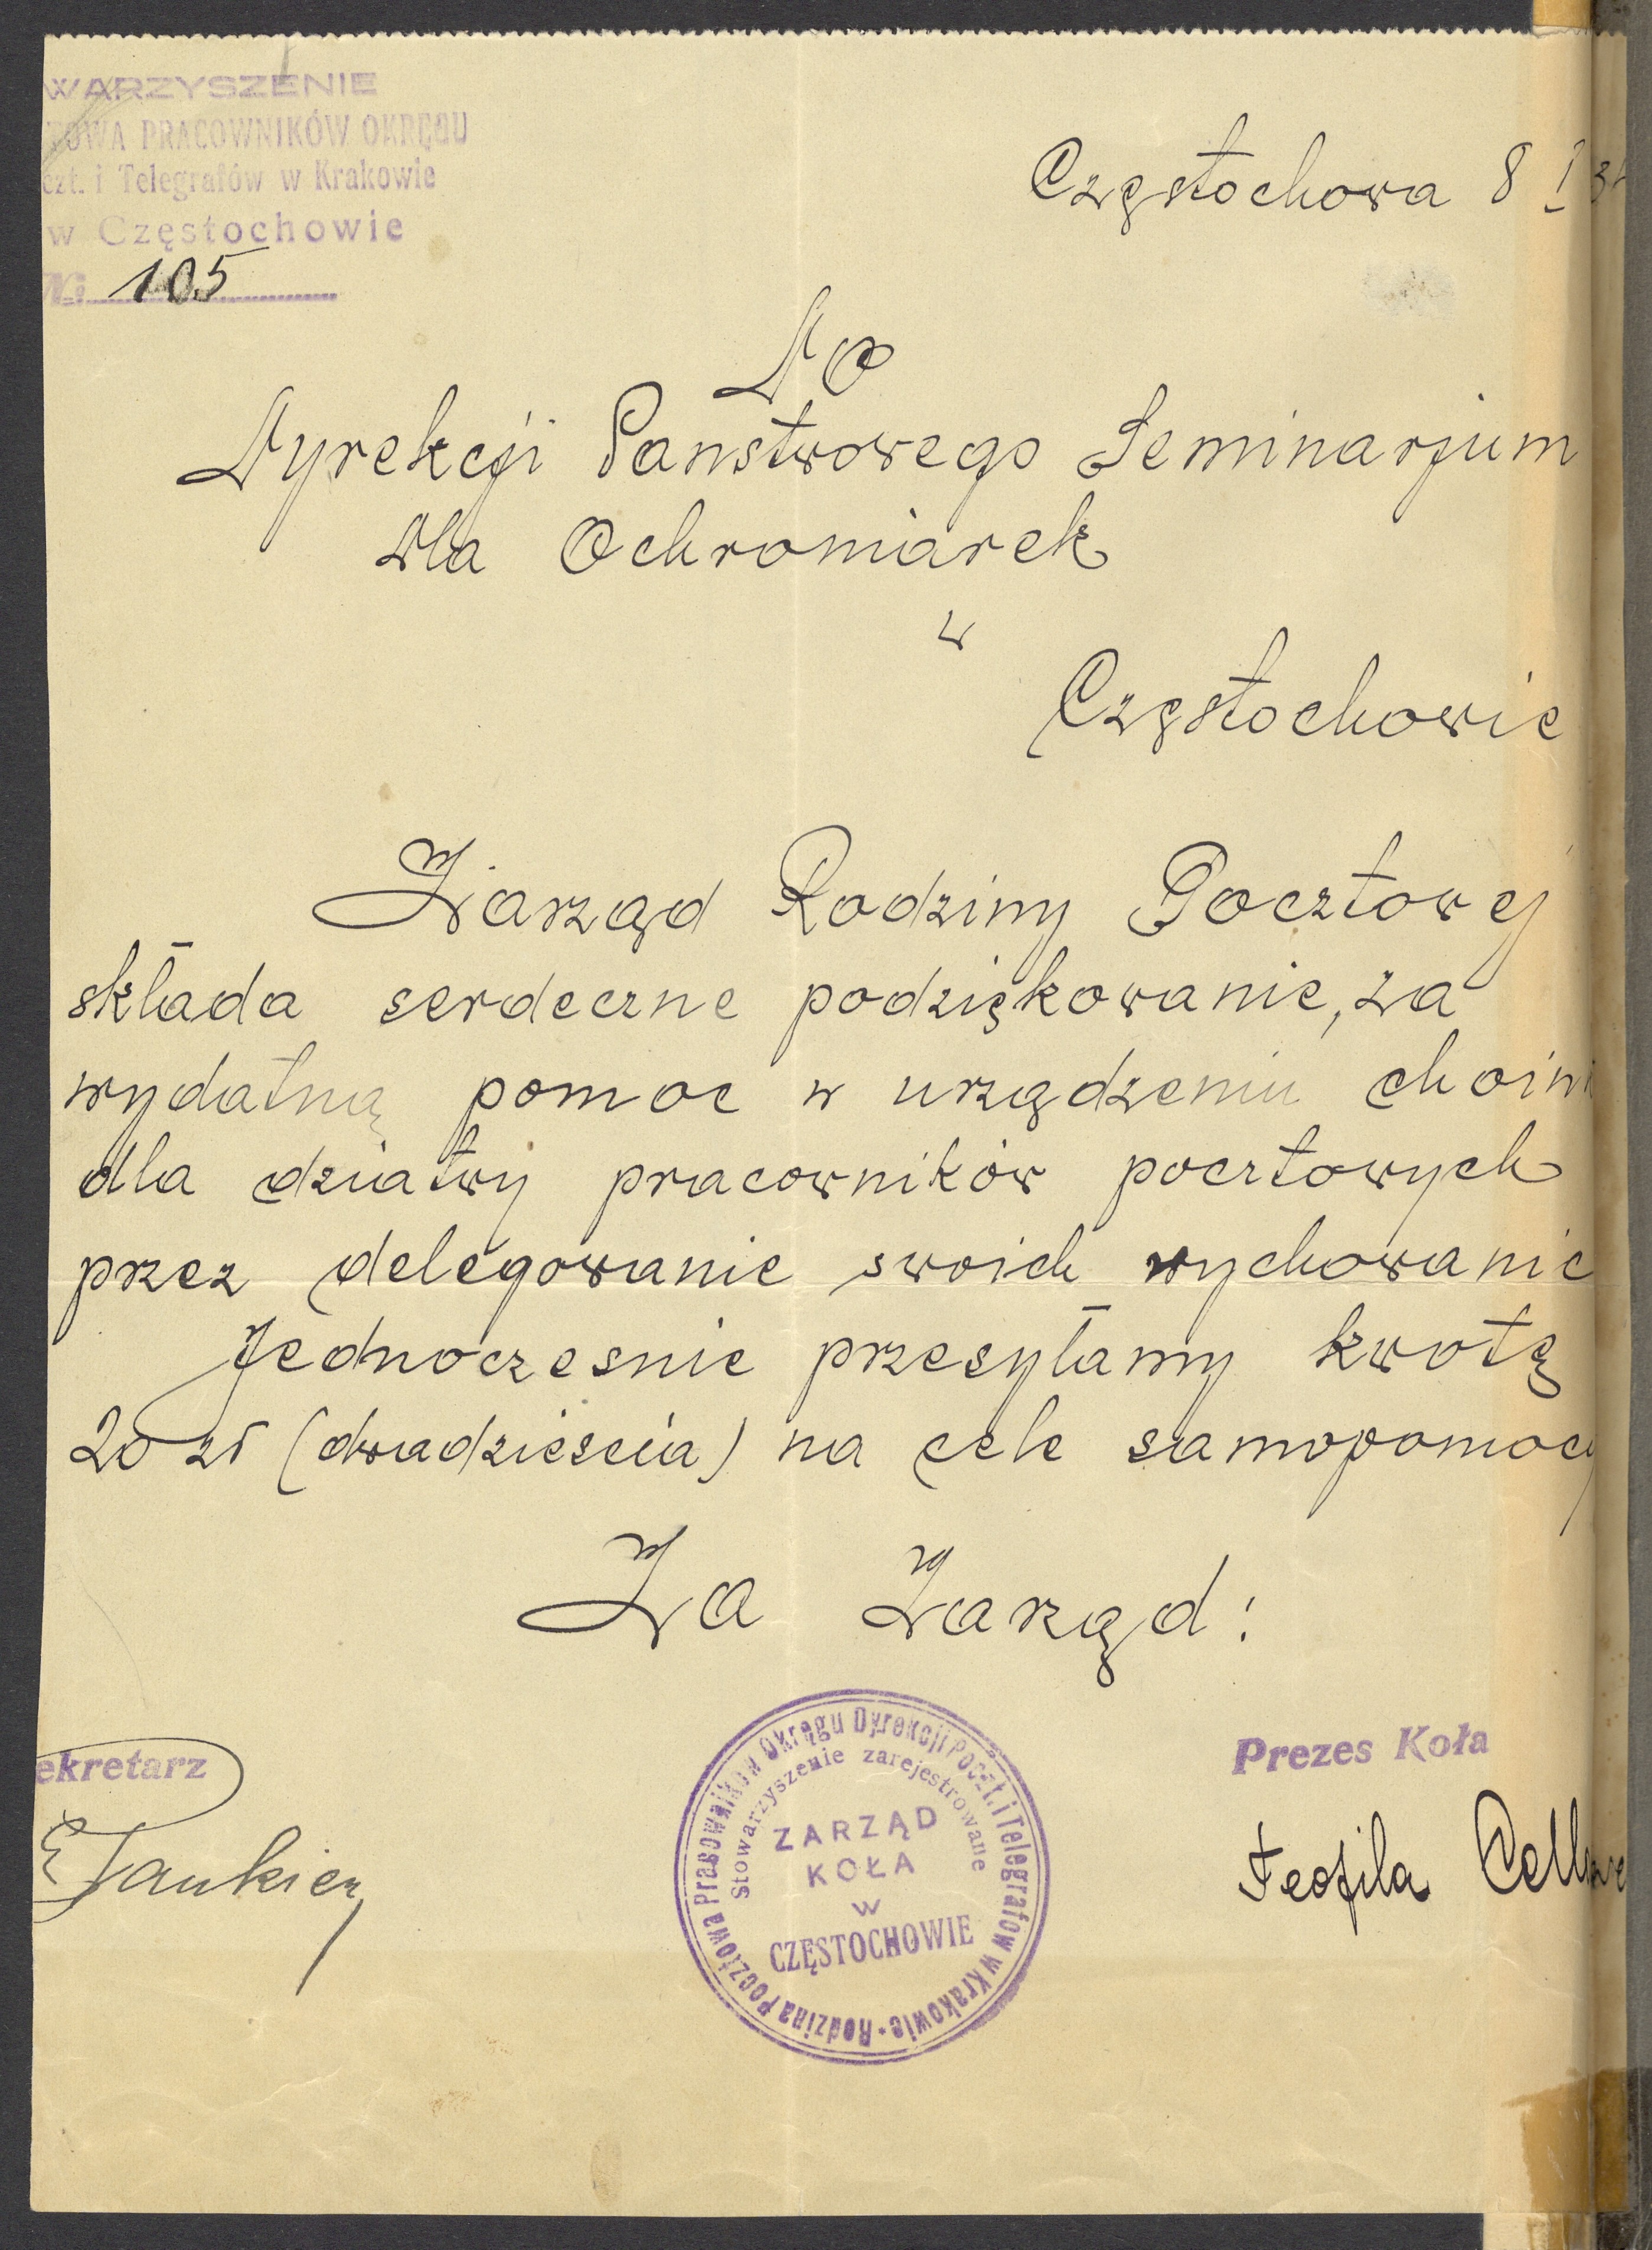 WARZYSZENIE
TOWA PRACOWNIKÓW OKRĘGU
czt. i Telegrafów w Krakowie
w Częstochowie
№ 105
Częstochowa 8 I 34
Do
Dyrekcji Panstwowego Seminarjum
dla Ochroniarek
w
Częstochowie
Zarząd Rodziny Pocztowej
składa serdeczne podziękowanie, za
wydatną pomoc w urządzeniu choin
dla dziatwy pracowników pocztowych
przez delegowanie swoich wychowanic
Jednoczesnie przesyłamy kwotę
20 zł (dwadzieścia) na cele samopomocy
Za Zarząd:
ekretarz
Prezes Koła
Teofila
Rodzina Pocztowa Pracowników Okręgu Dyrekcji Poczt. i Telegrafów w Krakowie
Stowarzyszenie zarejestrowane
ZARZĄD
KOŁA
w
CZĘSTOCHOWIE